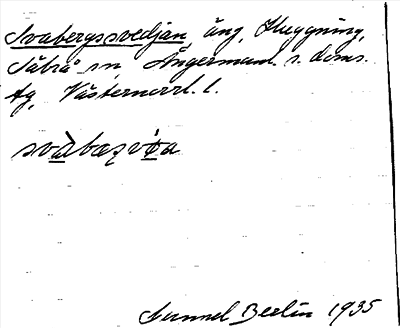 Svabergssvedjan äng, Huggning,
Säbrå sn, Ångermanl. s. doms.
tg, Västernorrl. l.
svabaʂvia
Sunnel Berlin 1935